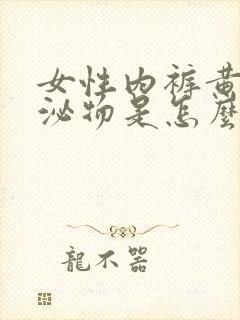 女性内裤黄
泌物是怎麼
龍不器